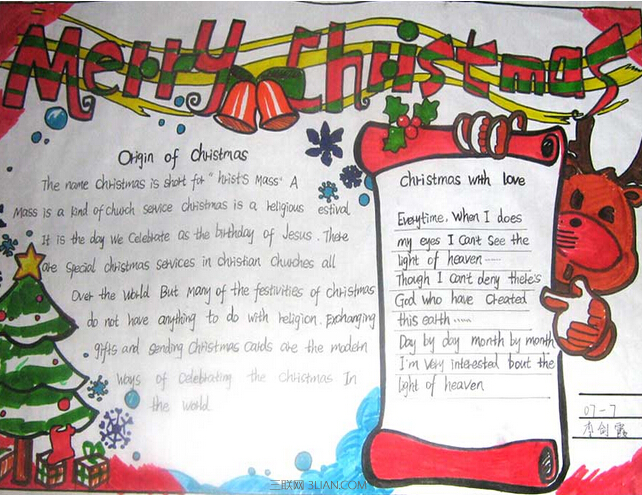 Merry Christmas
Origin of Christmas
The name Christmas is short for "hrist's Mass" A
Mass is a kind of church service christmas is a religious estival
It is the day we celebrate as the birthday of Jesus. There
are special christmas services in christian churches all
Over the world But many of the festivities of christmas
do not have anything to do with religion. Exchanging
gifts and sending Christmas cards are the modern
Ways of Celebrating the Christmas In
the world
Christmas with love
Everytime, When I does
my eyes I can't see the
light of heaven......
Though I can't deny there's
God who have created
this earth......
Day by day month by month
I'm very interested 'bout the
light of heaven
07-7
李剑霞
三联网 3LIAN.COM